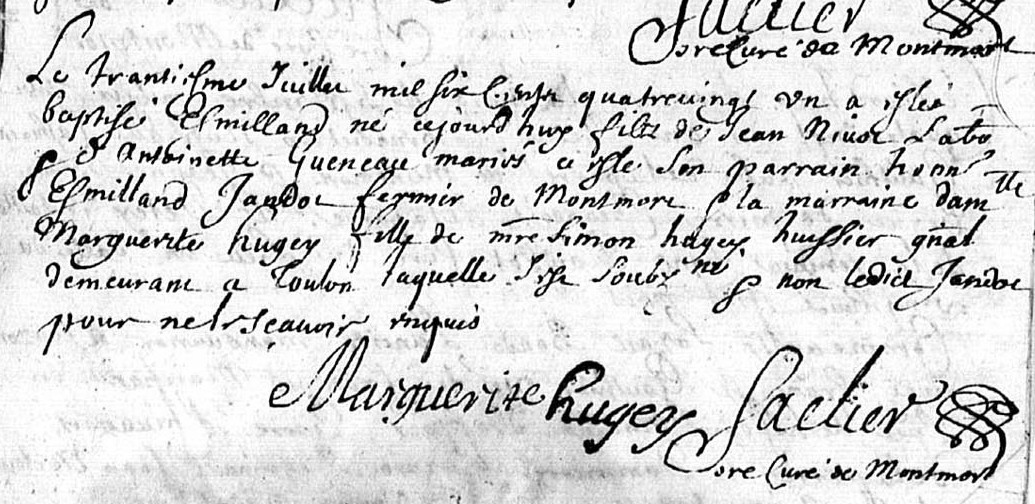 Sallier
Curé de Montmort
Le trantiesme Juillet mil six Cents quatrevingt un a esté
baptisé Esmilland né cejourdhuy filz de Jean Nivot Labo
& Antoinette Gueneau mariés a esté son parrain honn
Esmilland Jandot fermier de Montmort & la marraine dam lle
Marguerite hugey fille de mre Simon hugey huissier gnal
demeurant a Toulon laquelle s'est soubz né & non ledict Jandot
pour ne le scavoir enquis
Marguerite hugey Sallier
Curé de Montmort